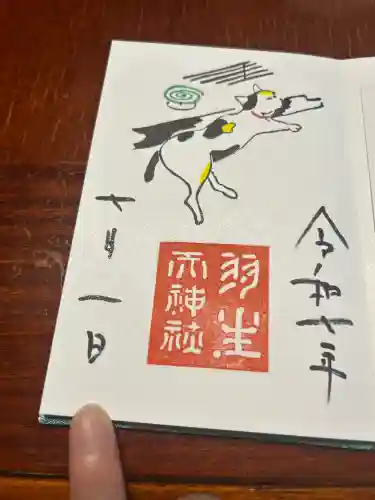 令和七年
羽生
天神社
十月一日